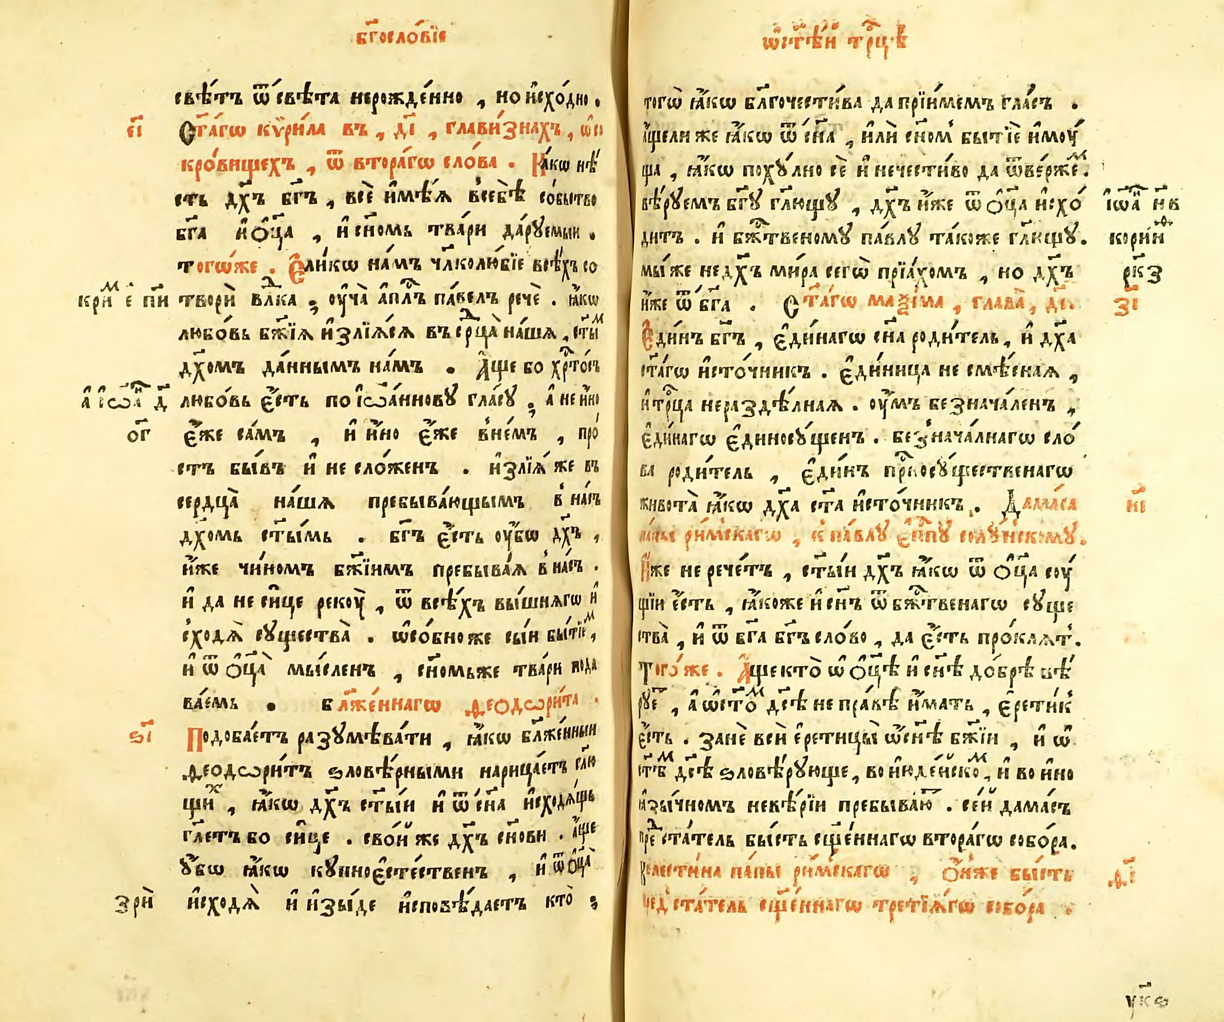 бг҃осло́вїе
свѣ́тъ ѿ свѣ́та нерожде́нно , но исхо́дно .
є҃і С҃та́гѡ кѷри́ла въ , д҃і , главизнахъ , ѡ со
кро́вищехъ , ѿ втора́гѡ сло́ва . Ꙗ́кѡ нѣ́
сть дх҃ъ бг҃ъ , всѐ имѣ́ѧ всебѣ̀ со́бьство
бг҃а и ѻц҃а̀ , и сн҃омь тва́ри да́руемыи .
тогѡ́же . Є҆ли́кѡ на́мъ чл҃колю́бїе всѣ́хъ со
кри м е пи творѝ вл҃ка , оу҆ча̀ ап҃лъ па́велъ речѐ . ꙗ́кѡ
любо́вь бж҃їѧ и҆злїѧ́сѧ въ ср҃ца̀ на́шѧ , ст҃ы́м
дх҃омъ да́ннымъ на́мъ . А́ще бо хр҃то́съ
а҃ іѡ҃а д҃ любо́вь є҆́сть по і҆ѡа́ннову гла́су , а҆ не и҆́но
о҃г є҆́же са́мъ , и҆ и҆́но є҆́же в не́мъ , про́
стъ бы́въ и҆ не сло́женъ . и҆злїѧ́ же въ
сердца̀ на́шѧ пребыва́ющымъ в на́съ
дх҃омь ст҃ы́мь . бг҃ъ є҆́сть оу҆́бо дх҃ъ ,
и҆́же чи́номъ бж҃їимъ пребыва́ѧ в на́съ .
и҆ да не си́це реко́у , ѿ всѣ́хъ вы́шнѧгѡ и
схо́дѧ существа̀ . ѡ҆со́бно же сы́и бы́тїе м ,
и҆ ѿ ѻ҆ц҃а̀ мы́сленъ , сн҃омьже тва́ри пода
ва́емь . бл҃же́ннагѡ ѳеодѡри́та .
ѕ҃і Подоба́етъ разумѣва́ти , ꙗ́кѡ бл҃же́нныи
ѳеодѡри́тъ ѕловѣ́рными нарица́етъ гл҃ю
щих , ꙗ́кѡ дх҃ъ ст҃ы́и и҆ ѿ сн҃а и҆сходѧ́щь
гл҃етъ бо си́це . сво́й же дх҃ъ сн҃ови . а́ще
у҆́бѡ ꙗ́кѡ купноє҆сте́ственъ , и҆ ѿ ѻ҆ц҃а̀
зрѝ и҆схо́дѧ и҆ и҆зы́де и҆сповѣ́даетъ кто̀ ,
ѡ҆ст҃ѣ́й тр҃цѣ
тогѡ̀ ꙗ́кѡ бл҃гочести́ва да прїи́мемъ гла́съ .
а҆́щели же ꙗ́кѡ ѿ сн҃а , и҆лѝ сн҃ом бытїѐ и҆мо́у
ща , ꙗ́кѡ поху́лно сѐ и҆ нечести́во да ѿве́ржем .
вѣ́руемъ бг҃у гл҃ющу , дх҃ъ и҆́же ѿ ѻ҆ц҃а̀ и҆схо́ іѡ҃а н҃в
дитъ . и҆ бж҃твеному па́влу та́коже гл҃ющу . кори́нѳ
мы́ же не дх҃ъ ми́ра сегѡ̀ прїѧ́хомъ , но дх҃ъ р҃кз
и҆́же ѿ бг҃а . С҃та́гѡ маѯи́ма , глава̀ , д҃і . з҃і
Є҆ди́нъ бг҃ъ , є҆ди́нагѡ сн҃а роди́тель , и҆ дх҃а
ст҃а́гѡ и҆сто́чникъ . є҆ди́ница не смѣ́снаѧ ,
и҆ тр҃ца нераздѣ́лнаѧ . оу҆́мъ безнача́ленъ ,
є҆ди́нагѡ є҆диносу́щенъ . безнача́лнагѡ сло́
ва роди́тель , є҆ди́нъ пр҃носу́щественагѡ
живота̀ ꙗ́кѡ дх҃а ст҃а и҆сто́чникъ . Дама́са и҃і
па́пы ри́мскагѡ , к па́влу єп҃пу солу́нскому .
И҆́же не рече́тъ , ст҃ы́и дх҃ъ ꙗ́кѡ ѿ ѻ҆ц҃а су́
щїи є҆́сть , ꙗ́коже и҆ сн҃ъ ѿ бж҃твенагѡ суще
ства̀ , и҆ ѿ бг҃а бг҃ъ сло́во , да є҆́сть про́клѧт .
Того́же . А́ще кто̀ ѡ ѻ҆ц҃ѣ и҆ сн҃ѣ до́брѣ вѣ́
рує т , а҆ ѡ ст҃ом дс҃ѣ не пра́вѣ и҆́мать , є҆рети́к
є҆́сть . занѐ всѝ є҆ретицы̀ ѡ сн҃ѣ бж҃їи , и҆ ѡ
ст҃ѣм дс҃ѣ ѕловѣ́рующе , во и҆юде́йском , и҆ во и҆но
ѧзы́чномъ невѣ́рїи пребыва́ют . се́й дама́съ
пред ста́тель бы́сть сщ҃е́ннагѡ втора́гѡ собо́ра .
Келести́на па́пы ри́мскагѡ , ѻ҆́нже бы́сть ѳ҃і
пред ста́тель сщ҃е́ннагѡ тре́тїѧгѡ собо́ра .
у҃кѕ